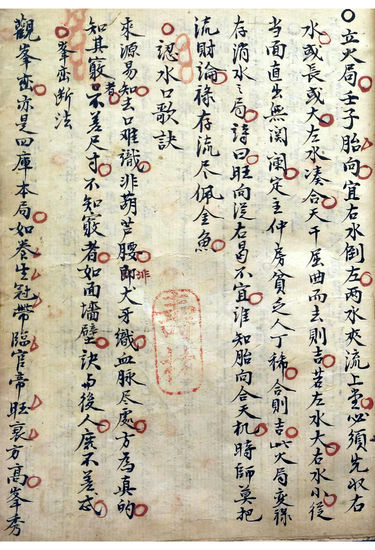 立火局壬子胎向宜右水倒左两水夾流上堂必須先收右
水或長或大左水凑合天干屈曲而去則吉若左水大右水小從
當面直出無関闌定主仲房貧乏人丁稀合則吉此火局変祿
存消水之局詩曰旺向從右曷不宜誰知胎向合天机時師莫把
流財論祿存流尽佩金魚
認水口歌訣
來源易知去口難識非葫芦腰即犬牙織血脉尽處方為真的
知其竅者不差尺寸不知竅者如面墻壁訣与後人庶不差忒
峯巒断法
觀峯巒亦是四庫本局如養生冠帶臨官帝旺衰方高峯秀